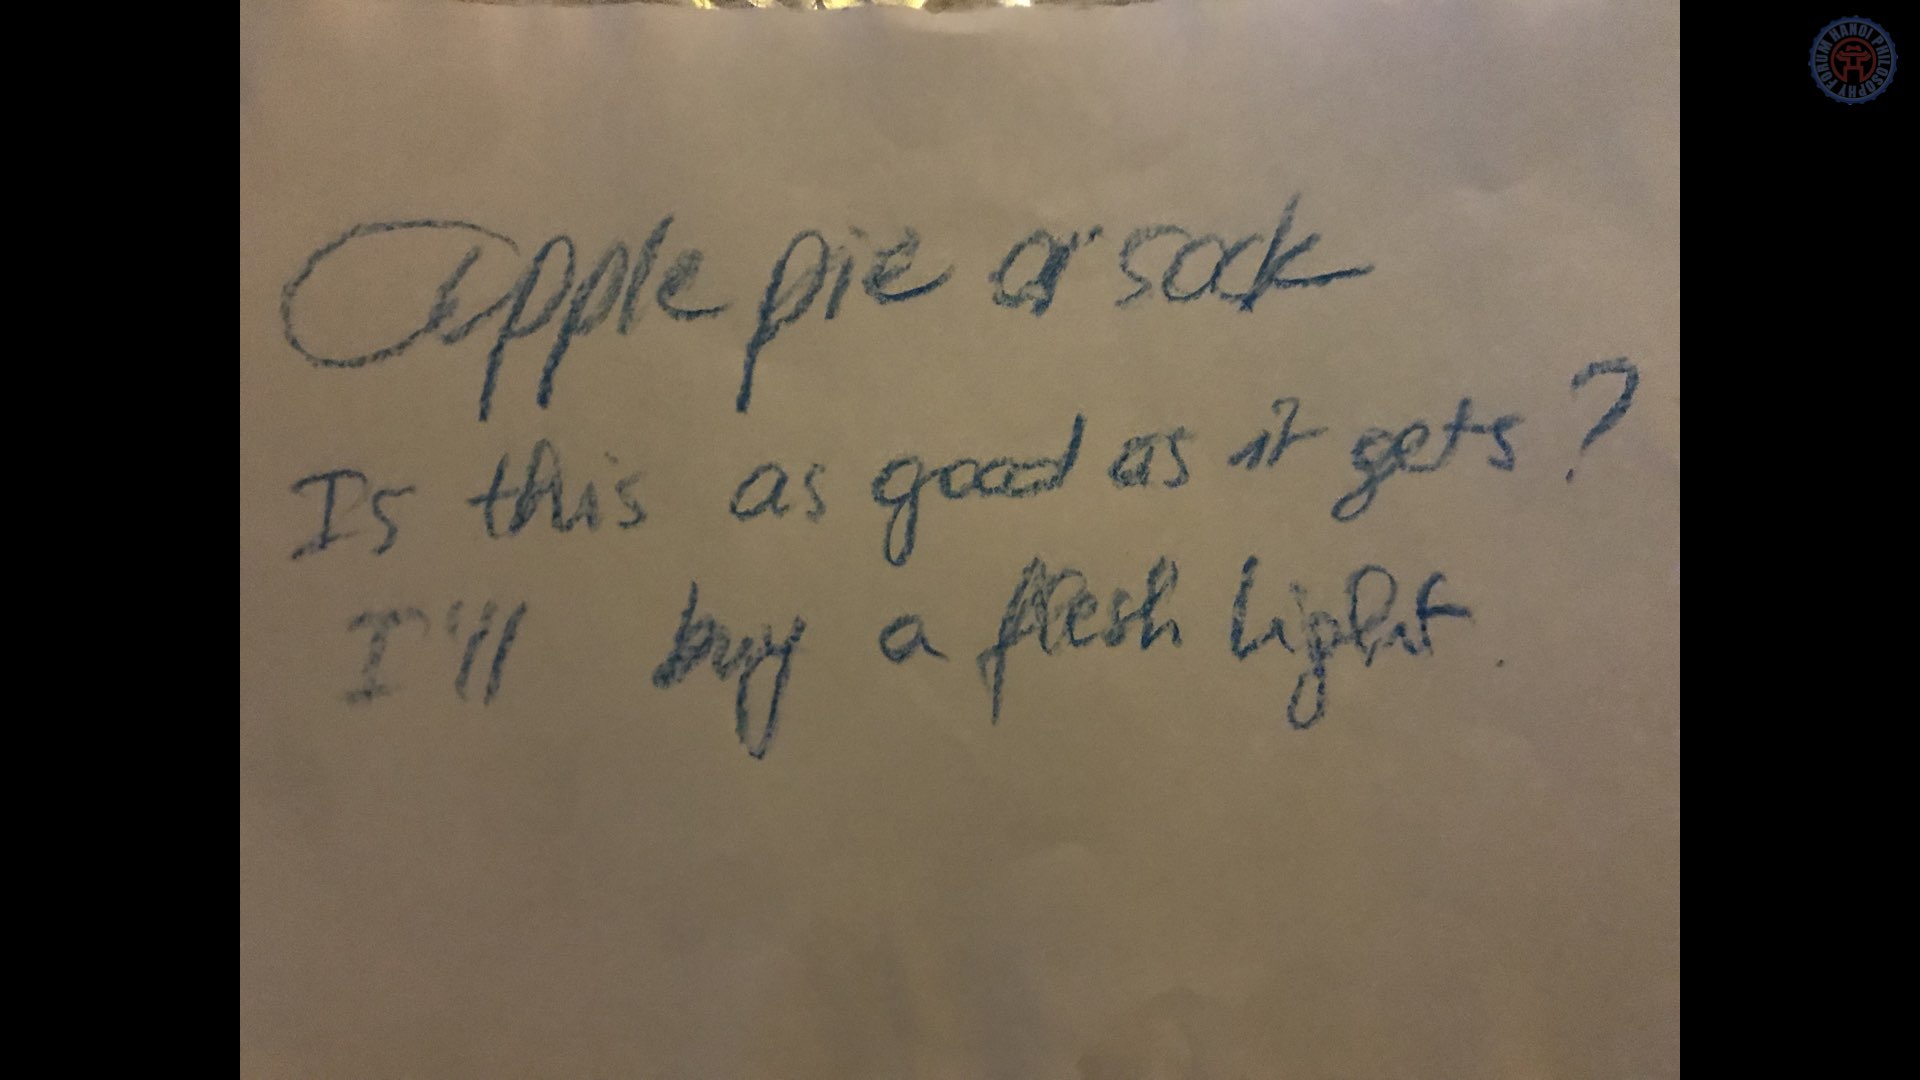 Apple pie or sock
Is this as good as it gets?
I'll buy a flesh light.
HANOI PHILOSOPHY FORUM